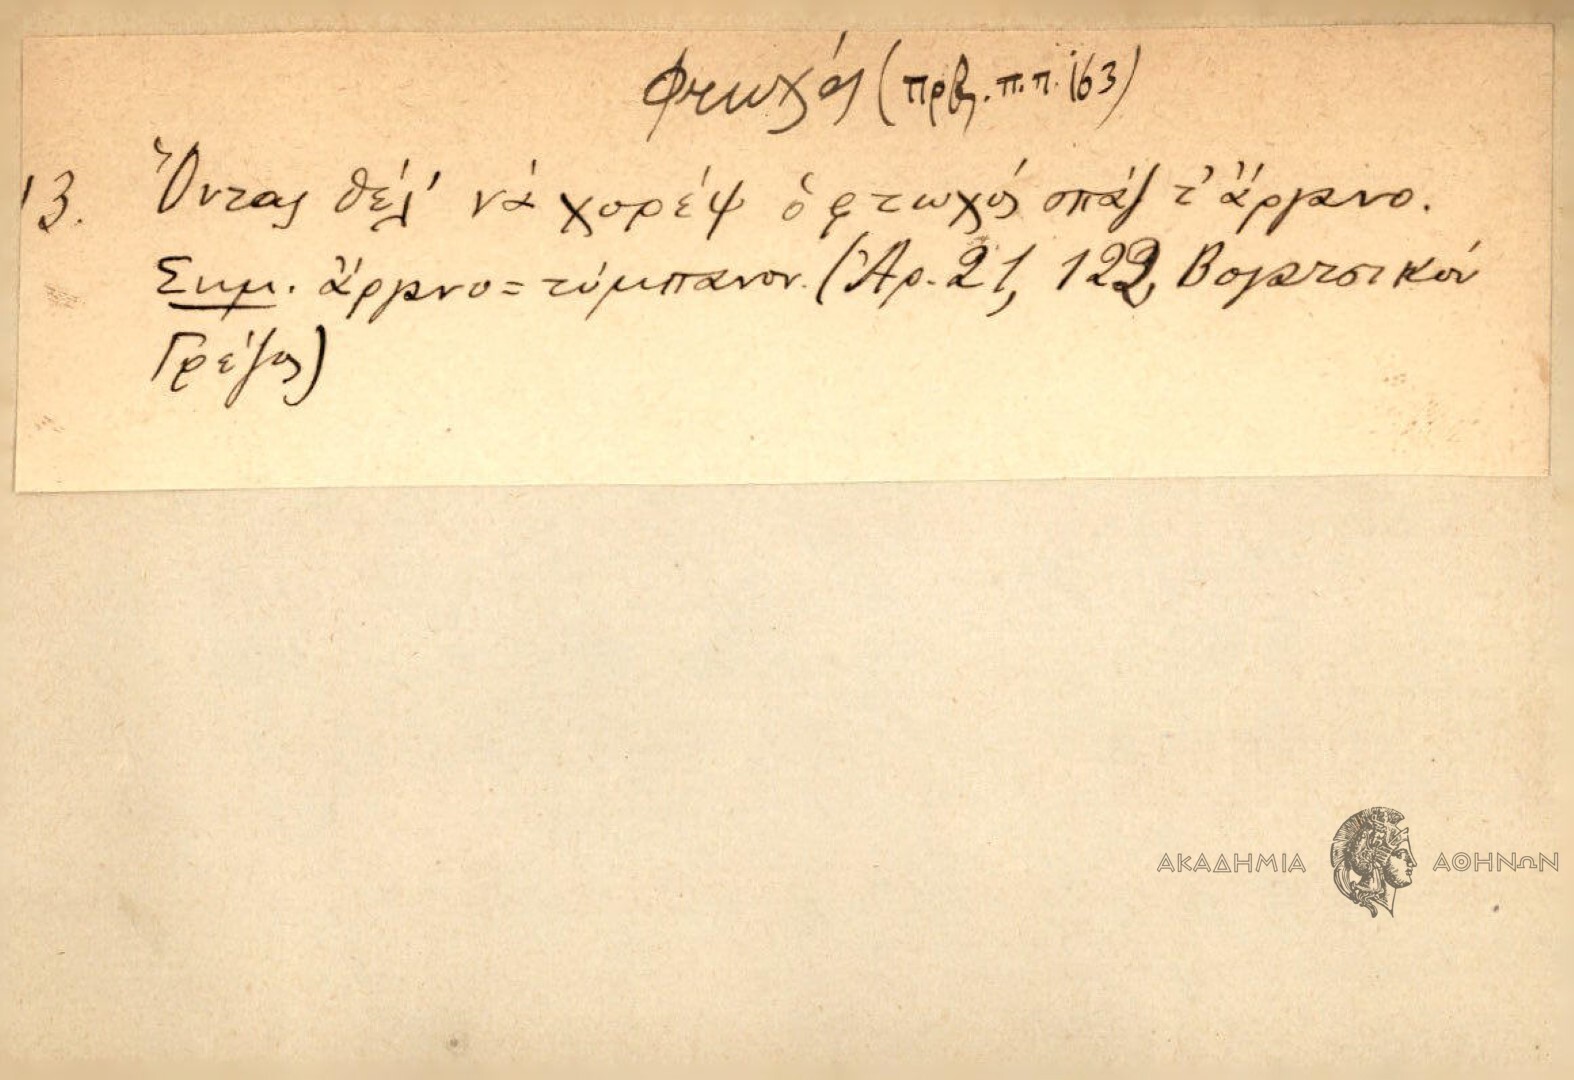 Φτωχός (πρβ. π.π. 163)
13. Ὅντας θέλ' νὰ χορέψ ὁ φτωχός σπάζ τ' ἄργανο.
Σημ. ἄργανο = τύμπανον. (Ἀρ. 21, 122, Βογατσικόν
Γρέζος)
ΑΚΑΔΗΜΙΑ ΑΘΗΝΩΝ